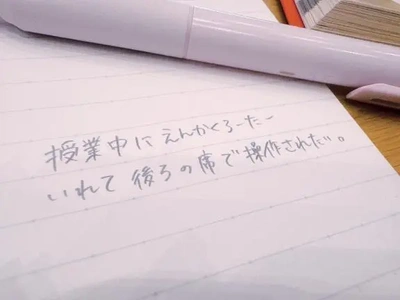 授業中にえんかくろーたー
いれて後ろの席で操作されたい。